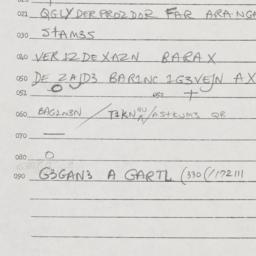 021 QGLYDERPROZDOR FAR ARANGA
030 STAM3S
040 VERIZDEXAZN BARAX
050 DE ZAJD3 BARINC 1G3VEJN AX
060 BAGIN3N / T1KN / ASTKUM3 QR
070 —
080 O
090 G3GAN3 A GARTL (330 (/172111